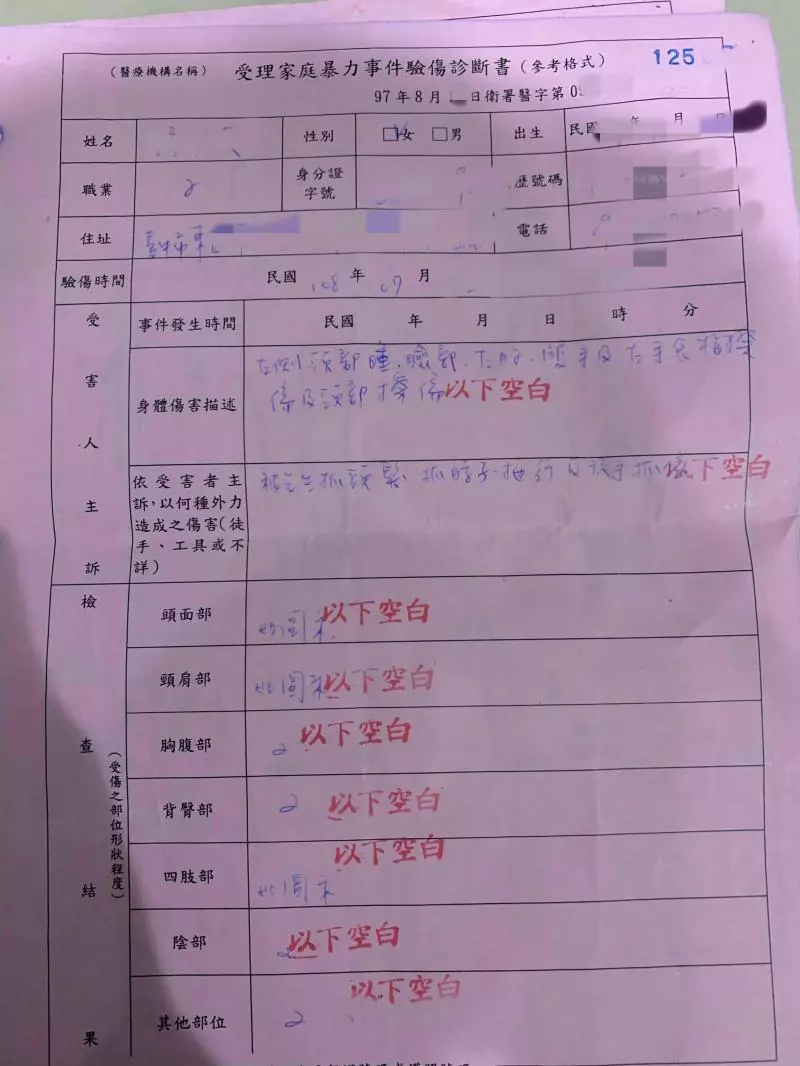 (醫療機構名稱) 受理家庭暴力事件驗傷診斷書(參考格式) 125
97年8月 日衛署醫字第0
姓名 性別 □女 □男 出生 民國 年 月 日
職業 身分證字號 歷號碼
住址 電話
驗傷時間 民國 108 年 07 月
受害人主訴
事件發生時間 民國 年 月 日 時 分
身體傷害描述
左側頭部腫、臉部、
傷及頭部擦傷以下空白
依受害者主訴,以何種外力造成之傷害(徒手、工具或不詳)
抓頭髮、抓脖子 以下空白
檢查結果
(受傷之部位形狀程度)
頭面部 如圖示 以下空白
頸肩部 如圖示 以下空白
胸腹部 以下空白
背臀部 以下空白
四肢部 如圖示 以下空白
陰部 以下空白
其他部位 以下空白